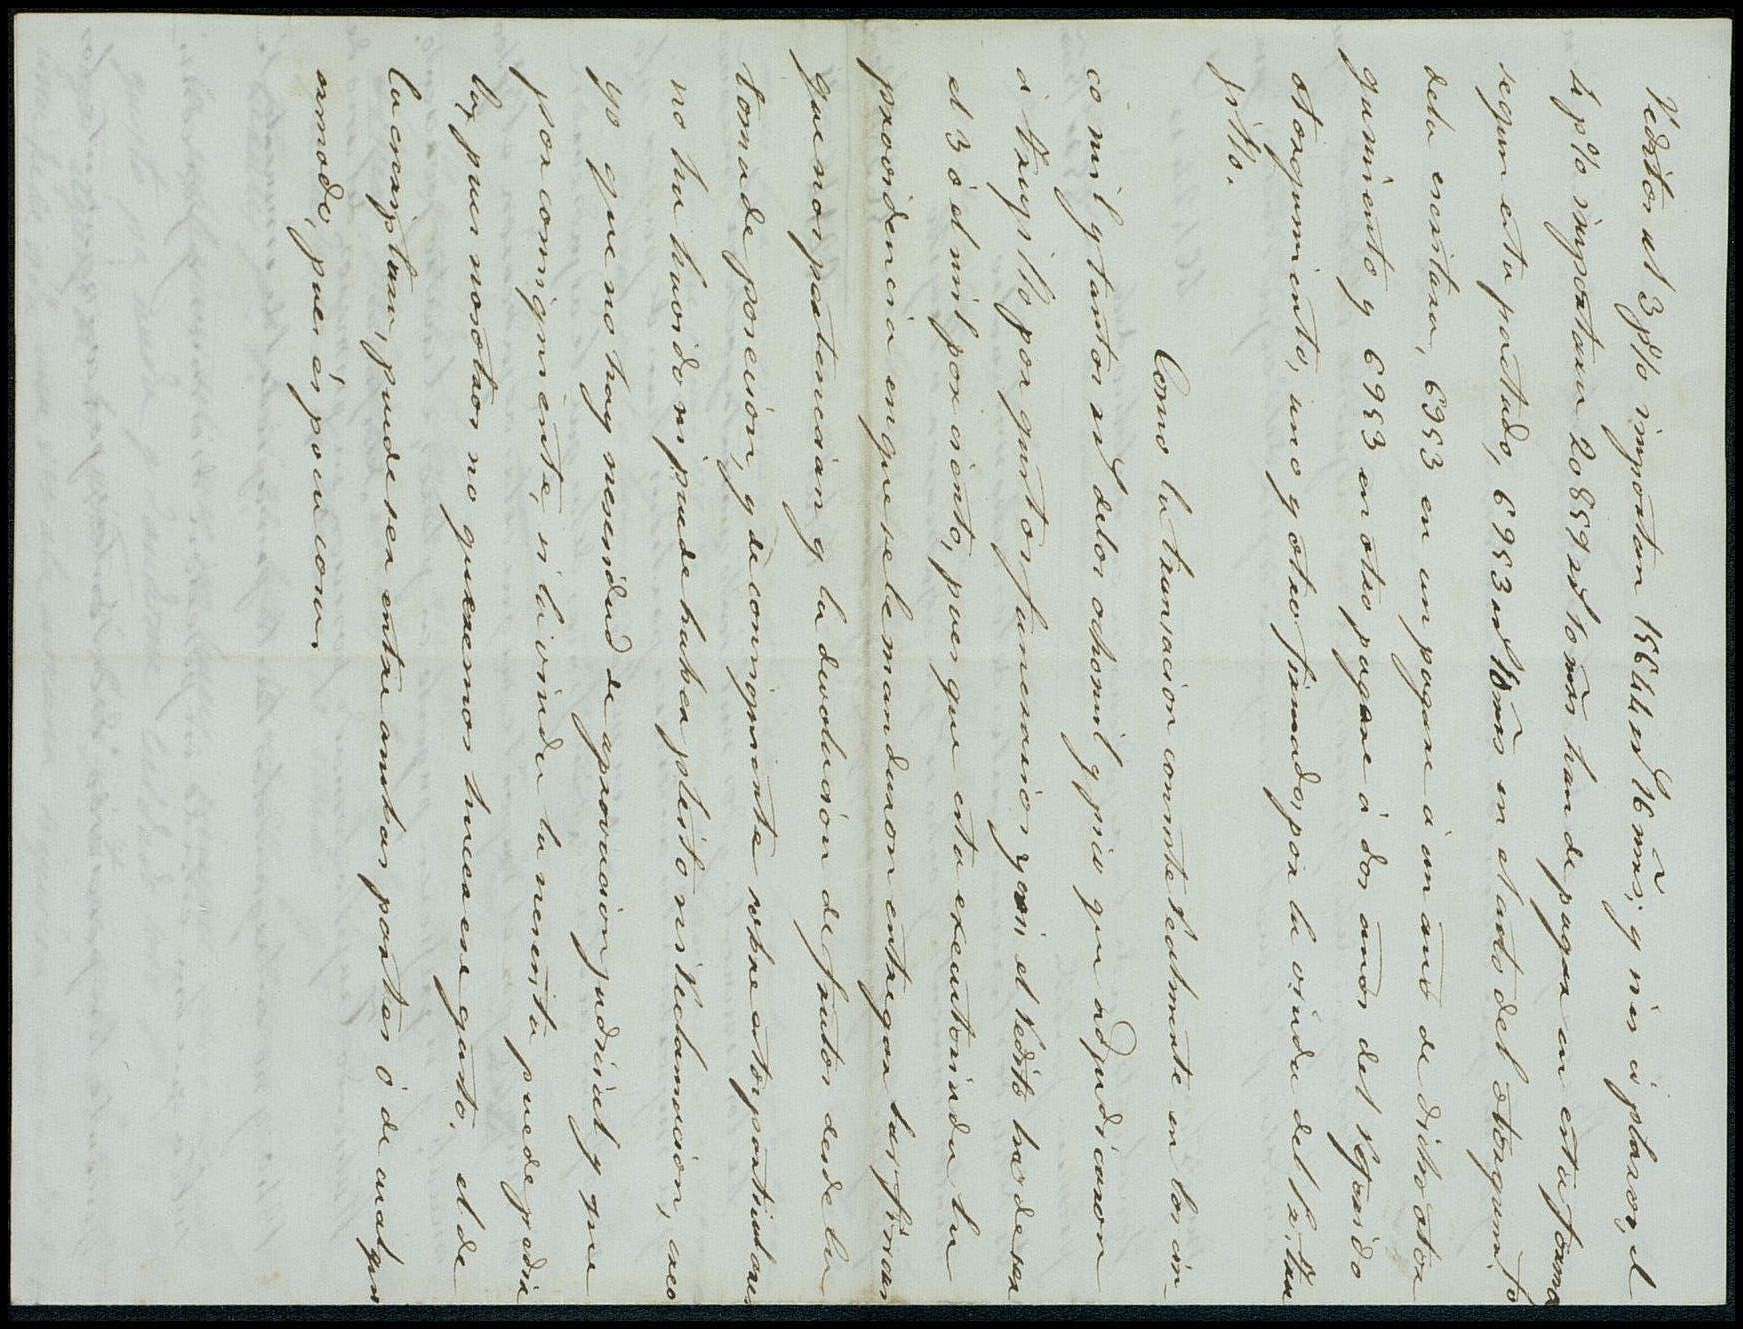 Réditos al 3 p% importan 15644 rs 16 mrs; y si es á plazos, el
4 p% importan 20859 rs 10 mrs han de pagar en esta forma
segun esta pactado, 6953 rs 10 mrs en el acto del otorgami.to
dela escritura, 6953 en un pagare á un año de dicho otor
gamiento y 6953 en otro pagare á dos años del referido
otorgamiento, uno y otro firmados por la viuda del
jillo.
Como la transacion consiste realmente en los cin-
co mil y tantos rs delos ochomil y pico que adjudicaron
á Trugillo por gastos funerarios y si el rédito ha de ser
el 3 ó el mil por ciento, pues que esta executoriada la
providencia en que se le mandaron entregar las fincas
que nos pertenecian y la devolucion de frutos desde la
toma de posesion, y de consiguiente sobre estos particulares
no ha havido ni puede haber pleito ni reclamacion, creo
yo que no hay necesidad de aprovacion judicial y que
por consiguiente, si la viuda la necesita puede pedir
la, pues nosotros no queremos hacer ese gasto. el de
la escriptura, puede ser entre ambas partes ó de cualquier
modo, pues es poca cosa.